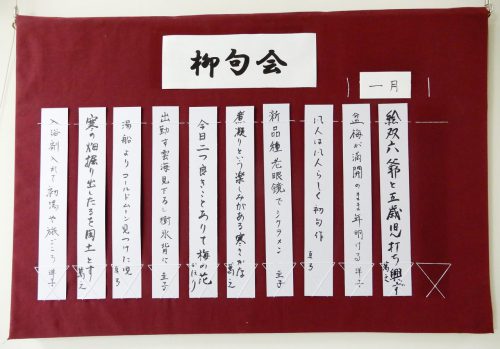 柳句会
一月
絵双六爺と五歳児打ち興ず 萬之
盆梅が満開のまま年明ける 洋子
凡人は凡人らしく初句作
新品種老眼鏡でシクラメン 圭子
煮凝りという楽しみがある寒さかな 萬之
今日二つ良きことありて梅の花
出勤す雲海見下ろし樹氷背に 圭子
湯船よりコールドムーン見つけた夜
寒の畑掘り出したるを陶土とす 萬之
入浴剤入れて初湯や旅ごころ 洋子